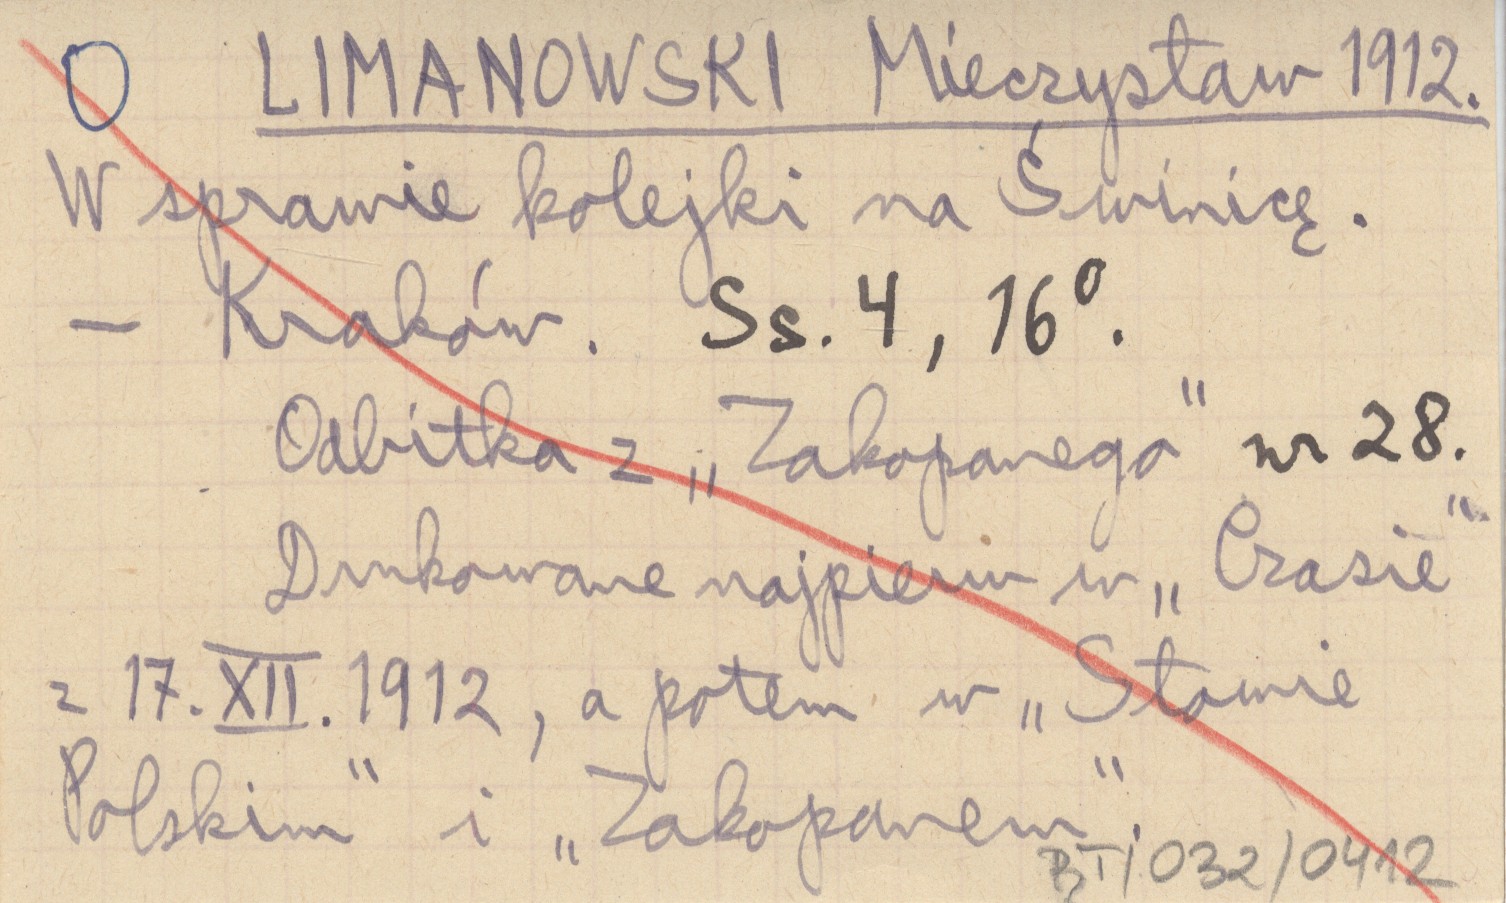 O LIMANOWSKI Mieczysław 1912.
W sprawie kolejki na Świnicę.
— Kraków. Ss. 4, 16⁰.
Odbitka z „Zakopanego" nr 28.
Drukowane najpierw w „Czasie".
z 17. XII. 1912, a potem w „Słowie
Polskim" i „Zakopanem".
BT/032/0412